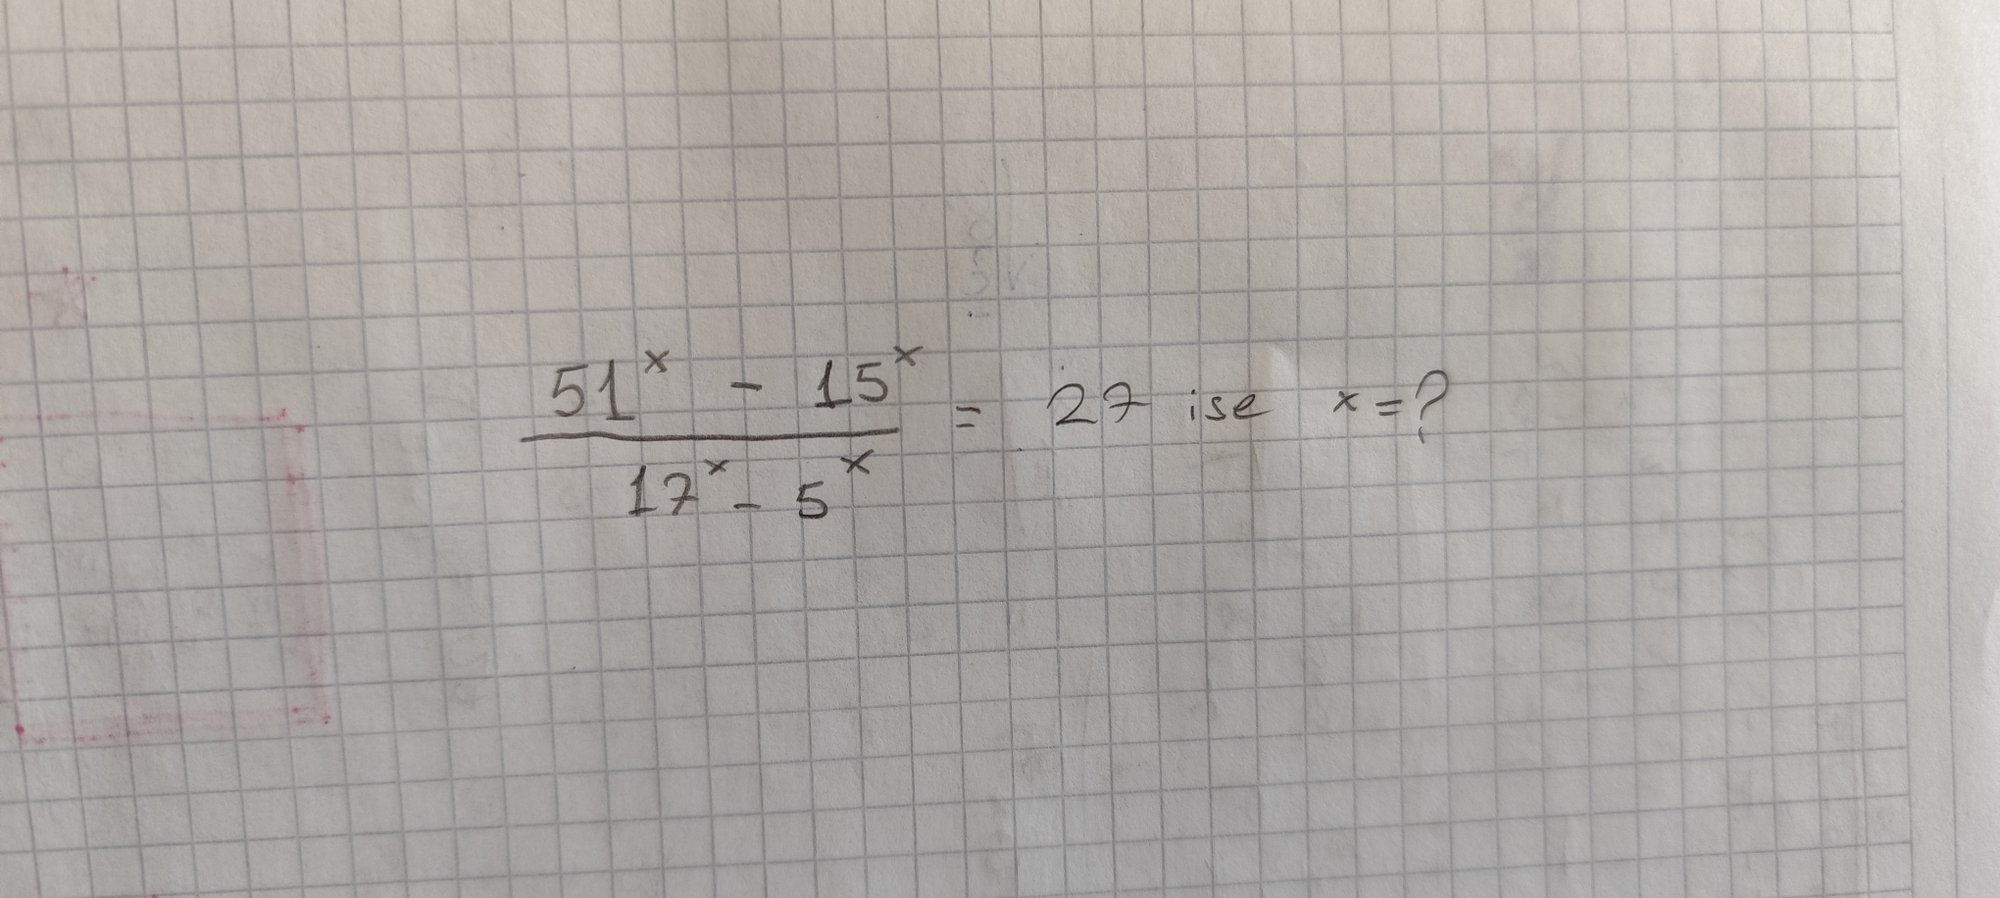 51^x - 15^x / 17^x - 5^x = 27 ise x = ?